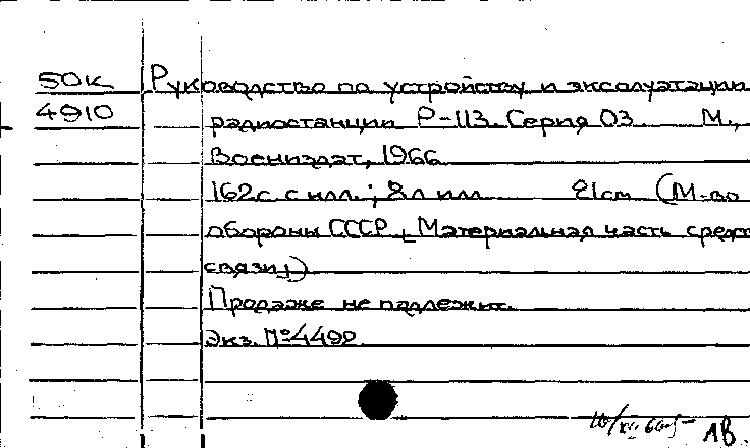 50к Руководство по устройству и эксплуатации
4910 радиостанции Р-113. Серия 03 М.,
Воениздат, 1966
162с. с илл.; 8л илл 21см (М-во
обороны СССР Материальная часть средств
связи)
Продаже не подлежит.
Экз. №4490
АВ.